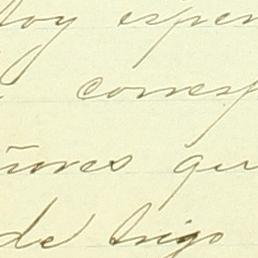 toy esper
corresp
ñores que
de trigo